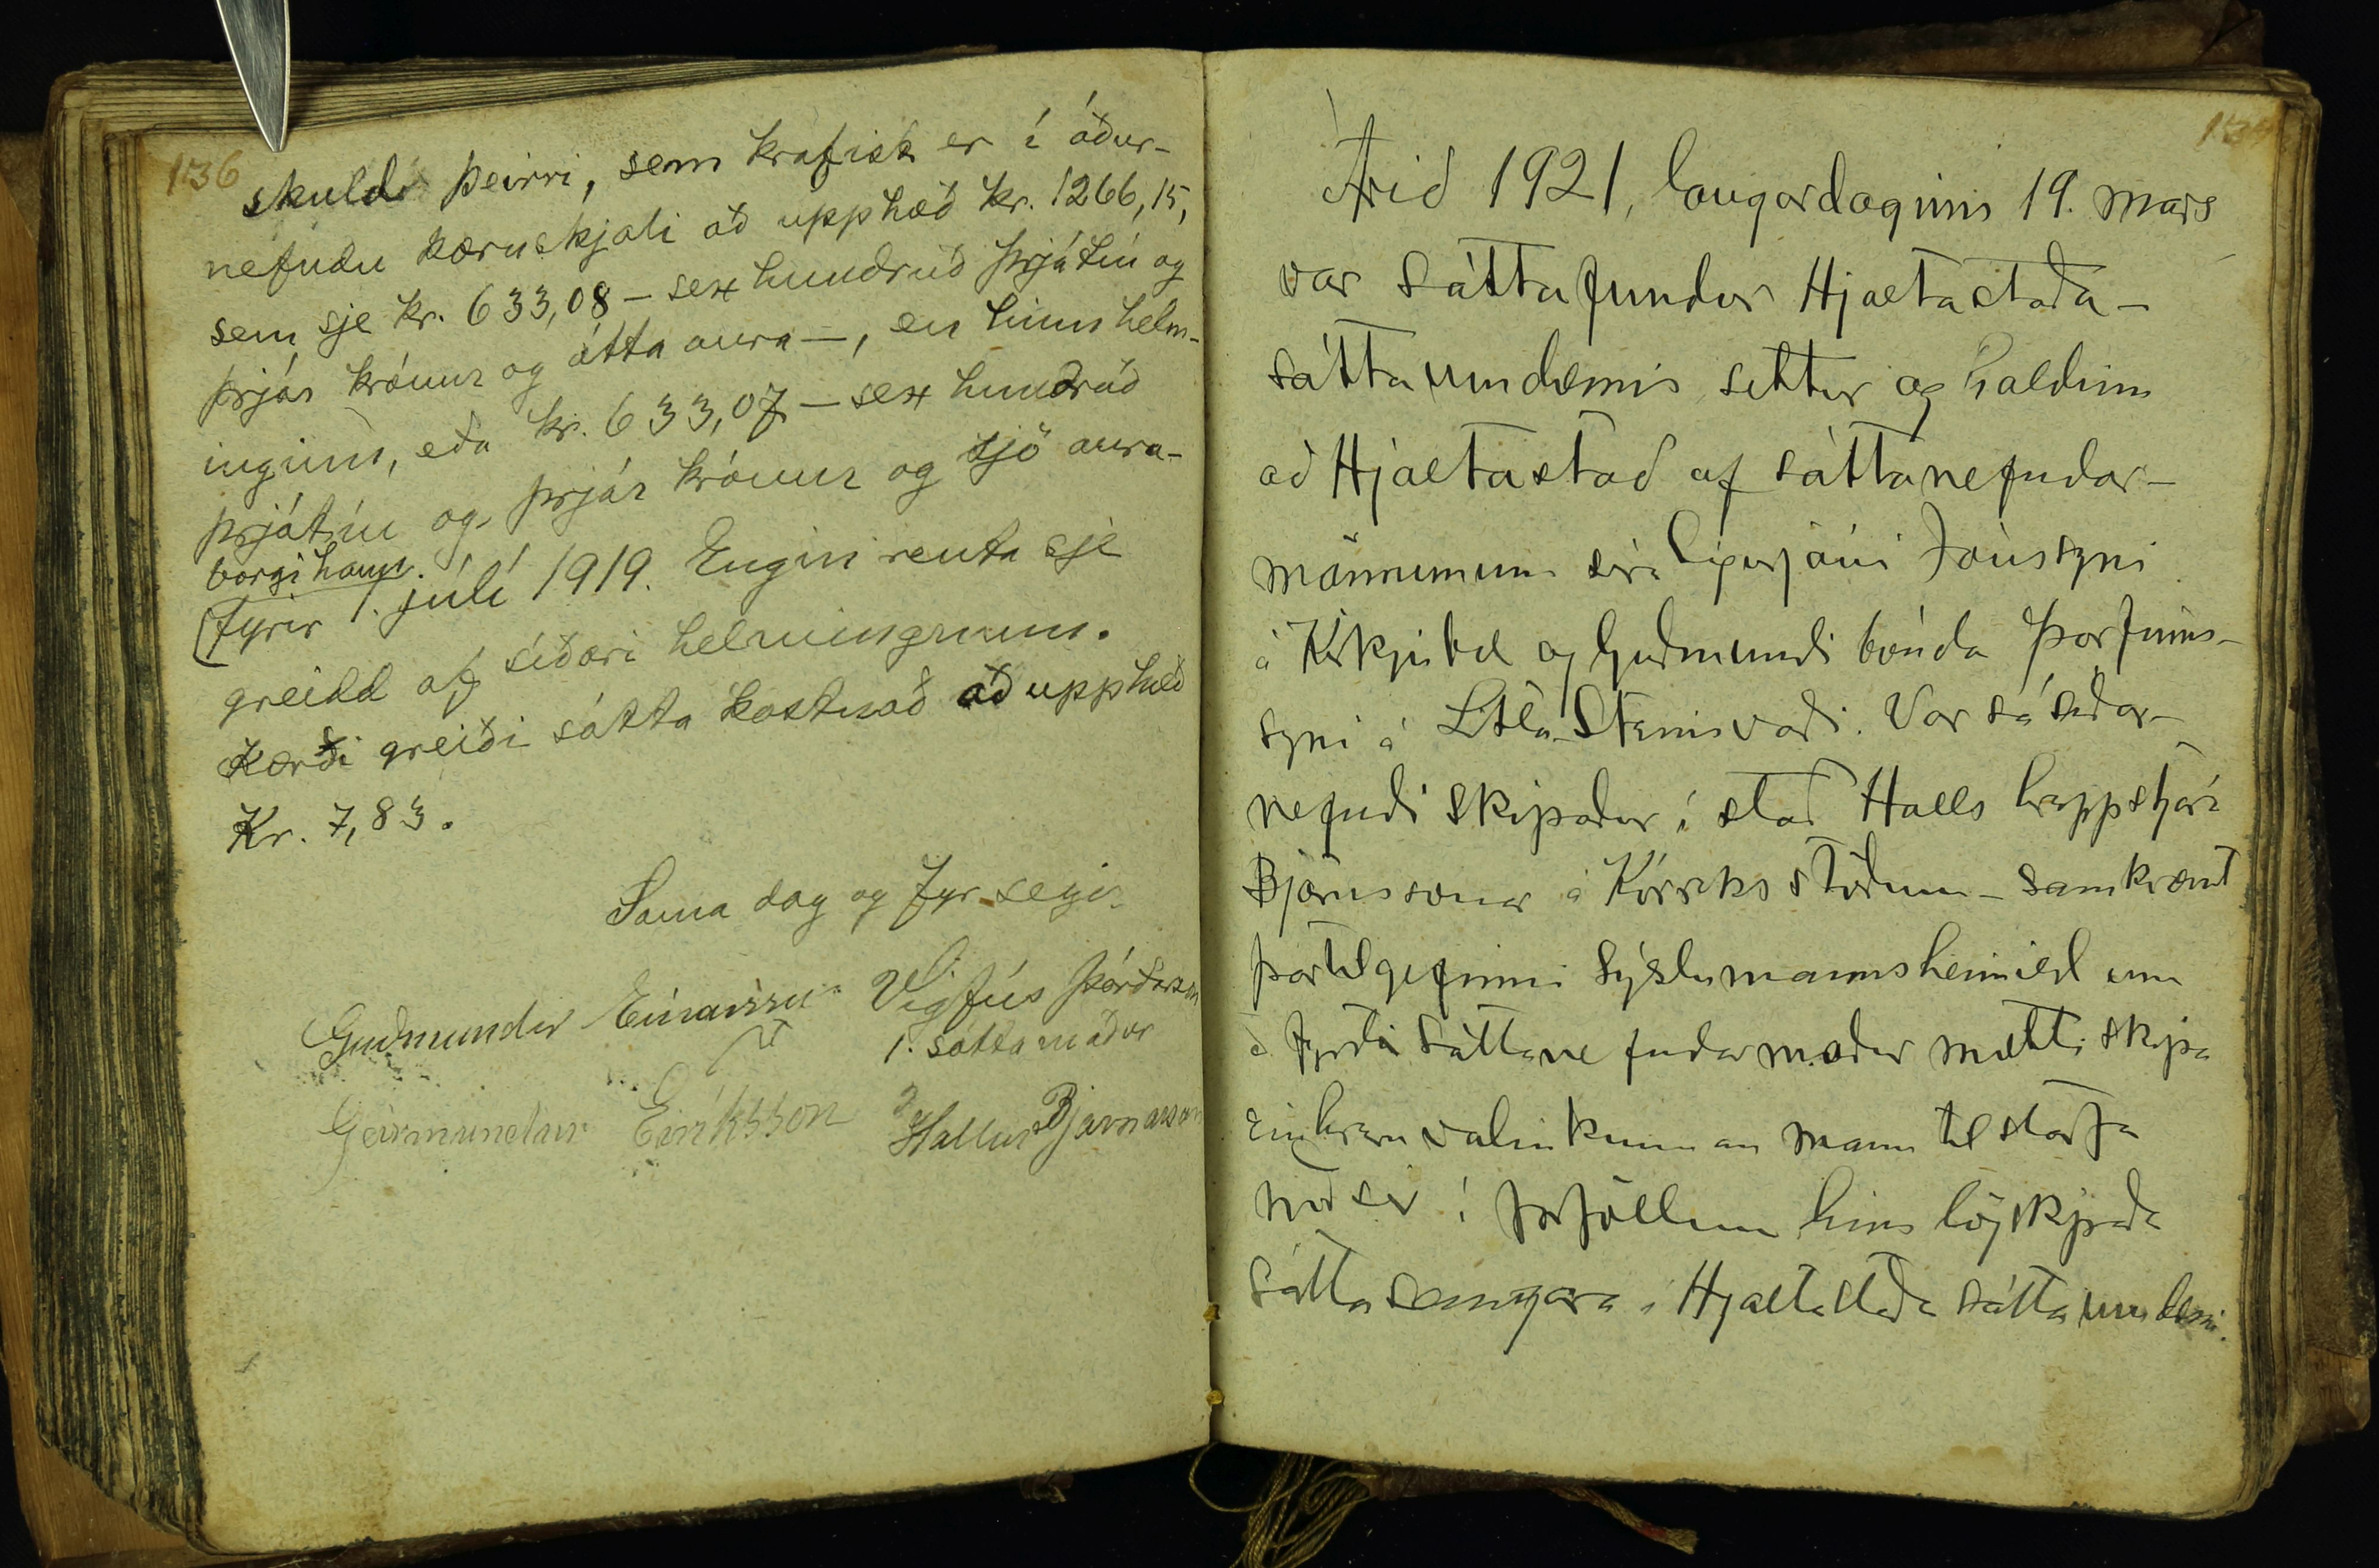 136
skuld þeirri, sem krafist er í áður-
nefndu kæruskjali að upphæð kr. 1266,15,
sem sje kr. 633,08 – sex hundruð þrjátíu og
þrjár krónur og átta aura –, en hinn helm-
inginn, eða kr. 633,07 – sex hundruð
þrjátíu og þrjár krónur og sjö aura –
borgi hann
fyrir 1. júlí 1919. Engin renta sje
greidd af síðari helmingnum.
Kærði greiði sátta kostnað að upphæð
Kr. 7,83.
Sama dag og fyr segir
Guðmundur Einarsson Vigfús Þórðarson
1. sáttamaður
Geirmundur Eiríksson Hallur Björnsson
Árið 1921, laugardaginn 19. mars
var sáttafundur Hjaltastaða-
sáttaumdæmis settur og haldinn
að Hjaltastað af sáttanefndar-
mönnunum síra Sigurjóni Jónssyni
á Kirkjubæ og Guðmundi bónda Þorfinns-
syni á Litla-Steinsvaði. Var sá síðar-
nefndi skipaður í stað Halls hreppstjóra
Björnssonar á Kórreksstöðum – samkvæmt
þartilgefinni sýslumannsheimild um
að fyrsti sáttanefndarmaður mætti skipa
einhvern valinkunnan mann til starfa
með sér í forföllum hins lögskipaða
sáttasemjara í Hjaltastaða sáttaumdæmi.